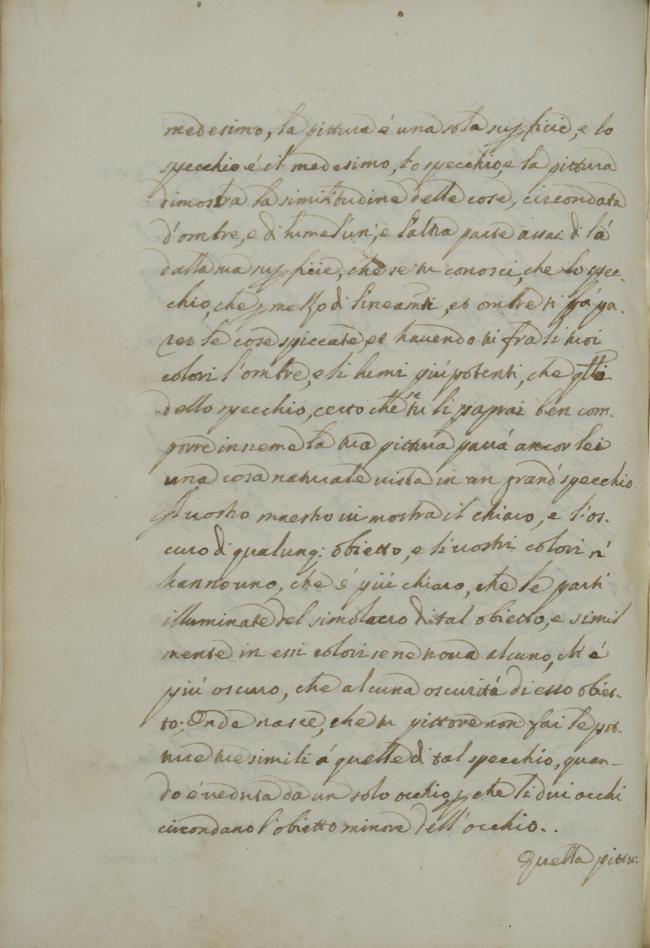 medesimo, la pittura é una sola supficie, e lo
specchio é il medesimo, lo specchio, e la pittura
dimostra la similitudine delle cose, circondata
d'ombre, e di lume l'un', e l'altra parse assai di lá
dalla sua supficie, che se tu conosci, che lo spec-
chio, che p mezzo di lineamti, et ombre ti fá pa-
rer le cose spiccate, et havendo tu fra li tuoi
colori l'ombre, e li lumi piú potenti, che qlli
dello specchio, certo che se tu li saprai ben com-
porre insieme la tua pittura parrá ancor lei
una cosa naturale vista in un grand' specchio.
Il vostro maestro vi mostra il chiaro, e l'os-
curo di qualunq: obietto, e li vostri colori n'
hanno uno, che é piú chiaro, che le parti
illuminate del simolacro di tal obietto, e simil
mente in essi colori se ne trova alcuno, ch' é
piú oscuro, che alcuna oscuritá di esso obiet-
to; Onde nasce, che tu pittore non fai le pit-
ture tue simili á quelle di tal specchio, quan-
do é veduta da un solo occhio, p che li dui occhi
circondano l'obietto minore dell'occhio..
Quella pittu-